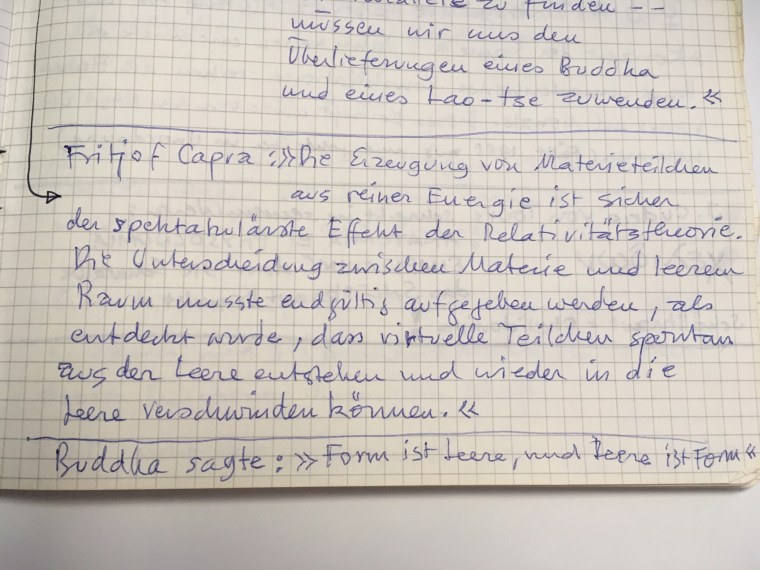 zu finden --
müssen wir uns den
Überlieferungen eines Buddha
und eines Lao-tse zuwenden.«
Fritjof Capra: »Die Erzeugung von Materieteilchen
aus reiner Energie ist sicher
der spektakulärste Effekt der Relativitätstheorie.
Die Unterscheidung zwischen Materie und leerem
Raum musste endgültig aufgegeben werden, als
entdeckt wurde, dass virtuelle Teilchen spontan
aus der Leere entstehen und wieder in die
Leere verschwinden können.«
Buddha sagte: »Form ist Leere, und Leere ist Form«